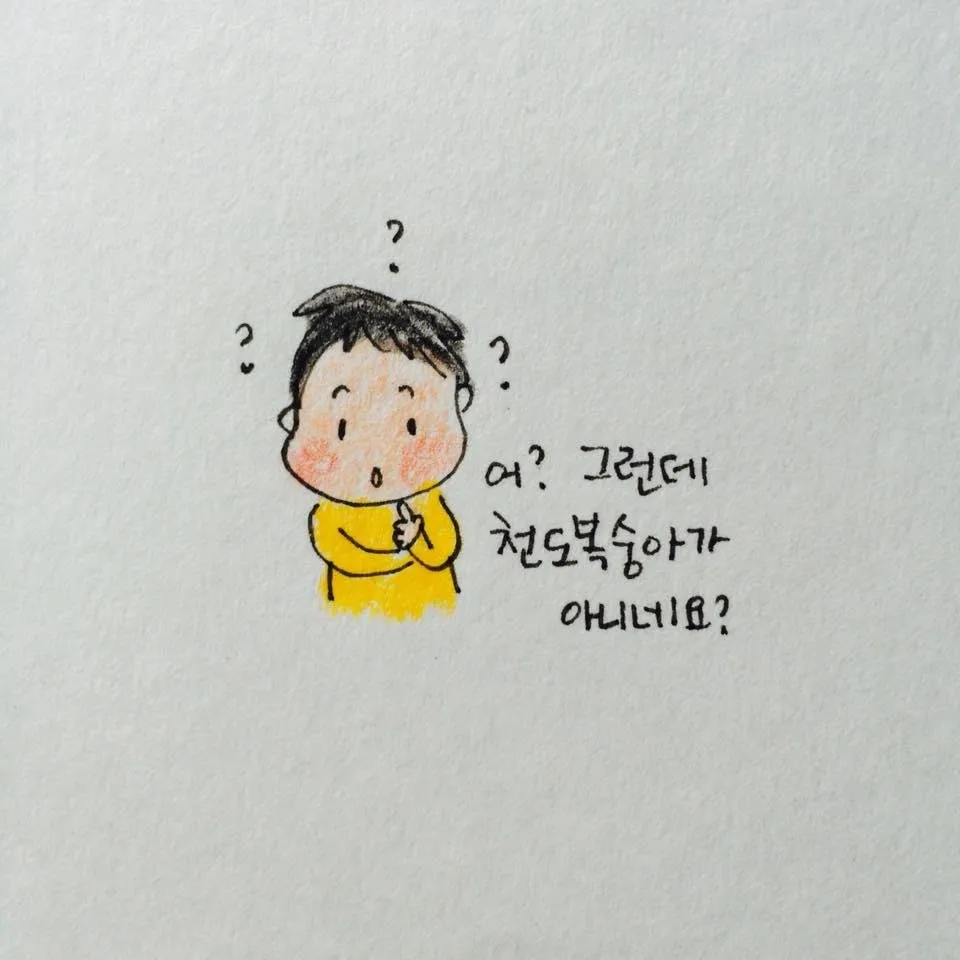 ?
?
?
어? 그런데
천도복숭아가
아니네요?